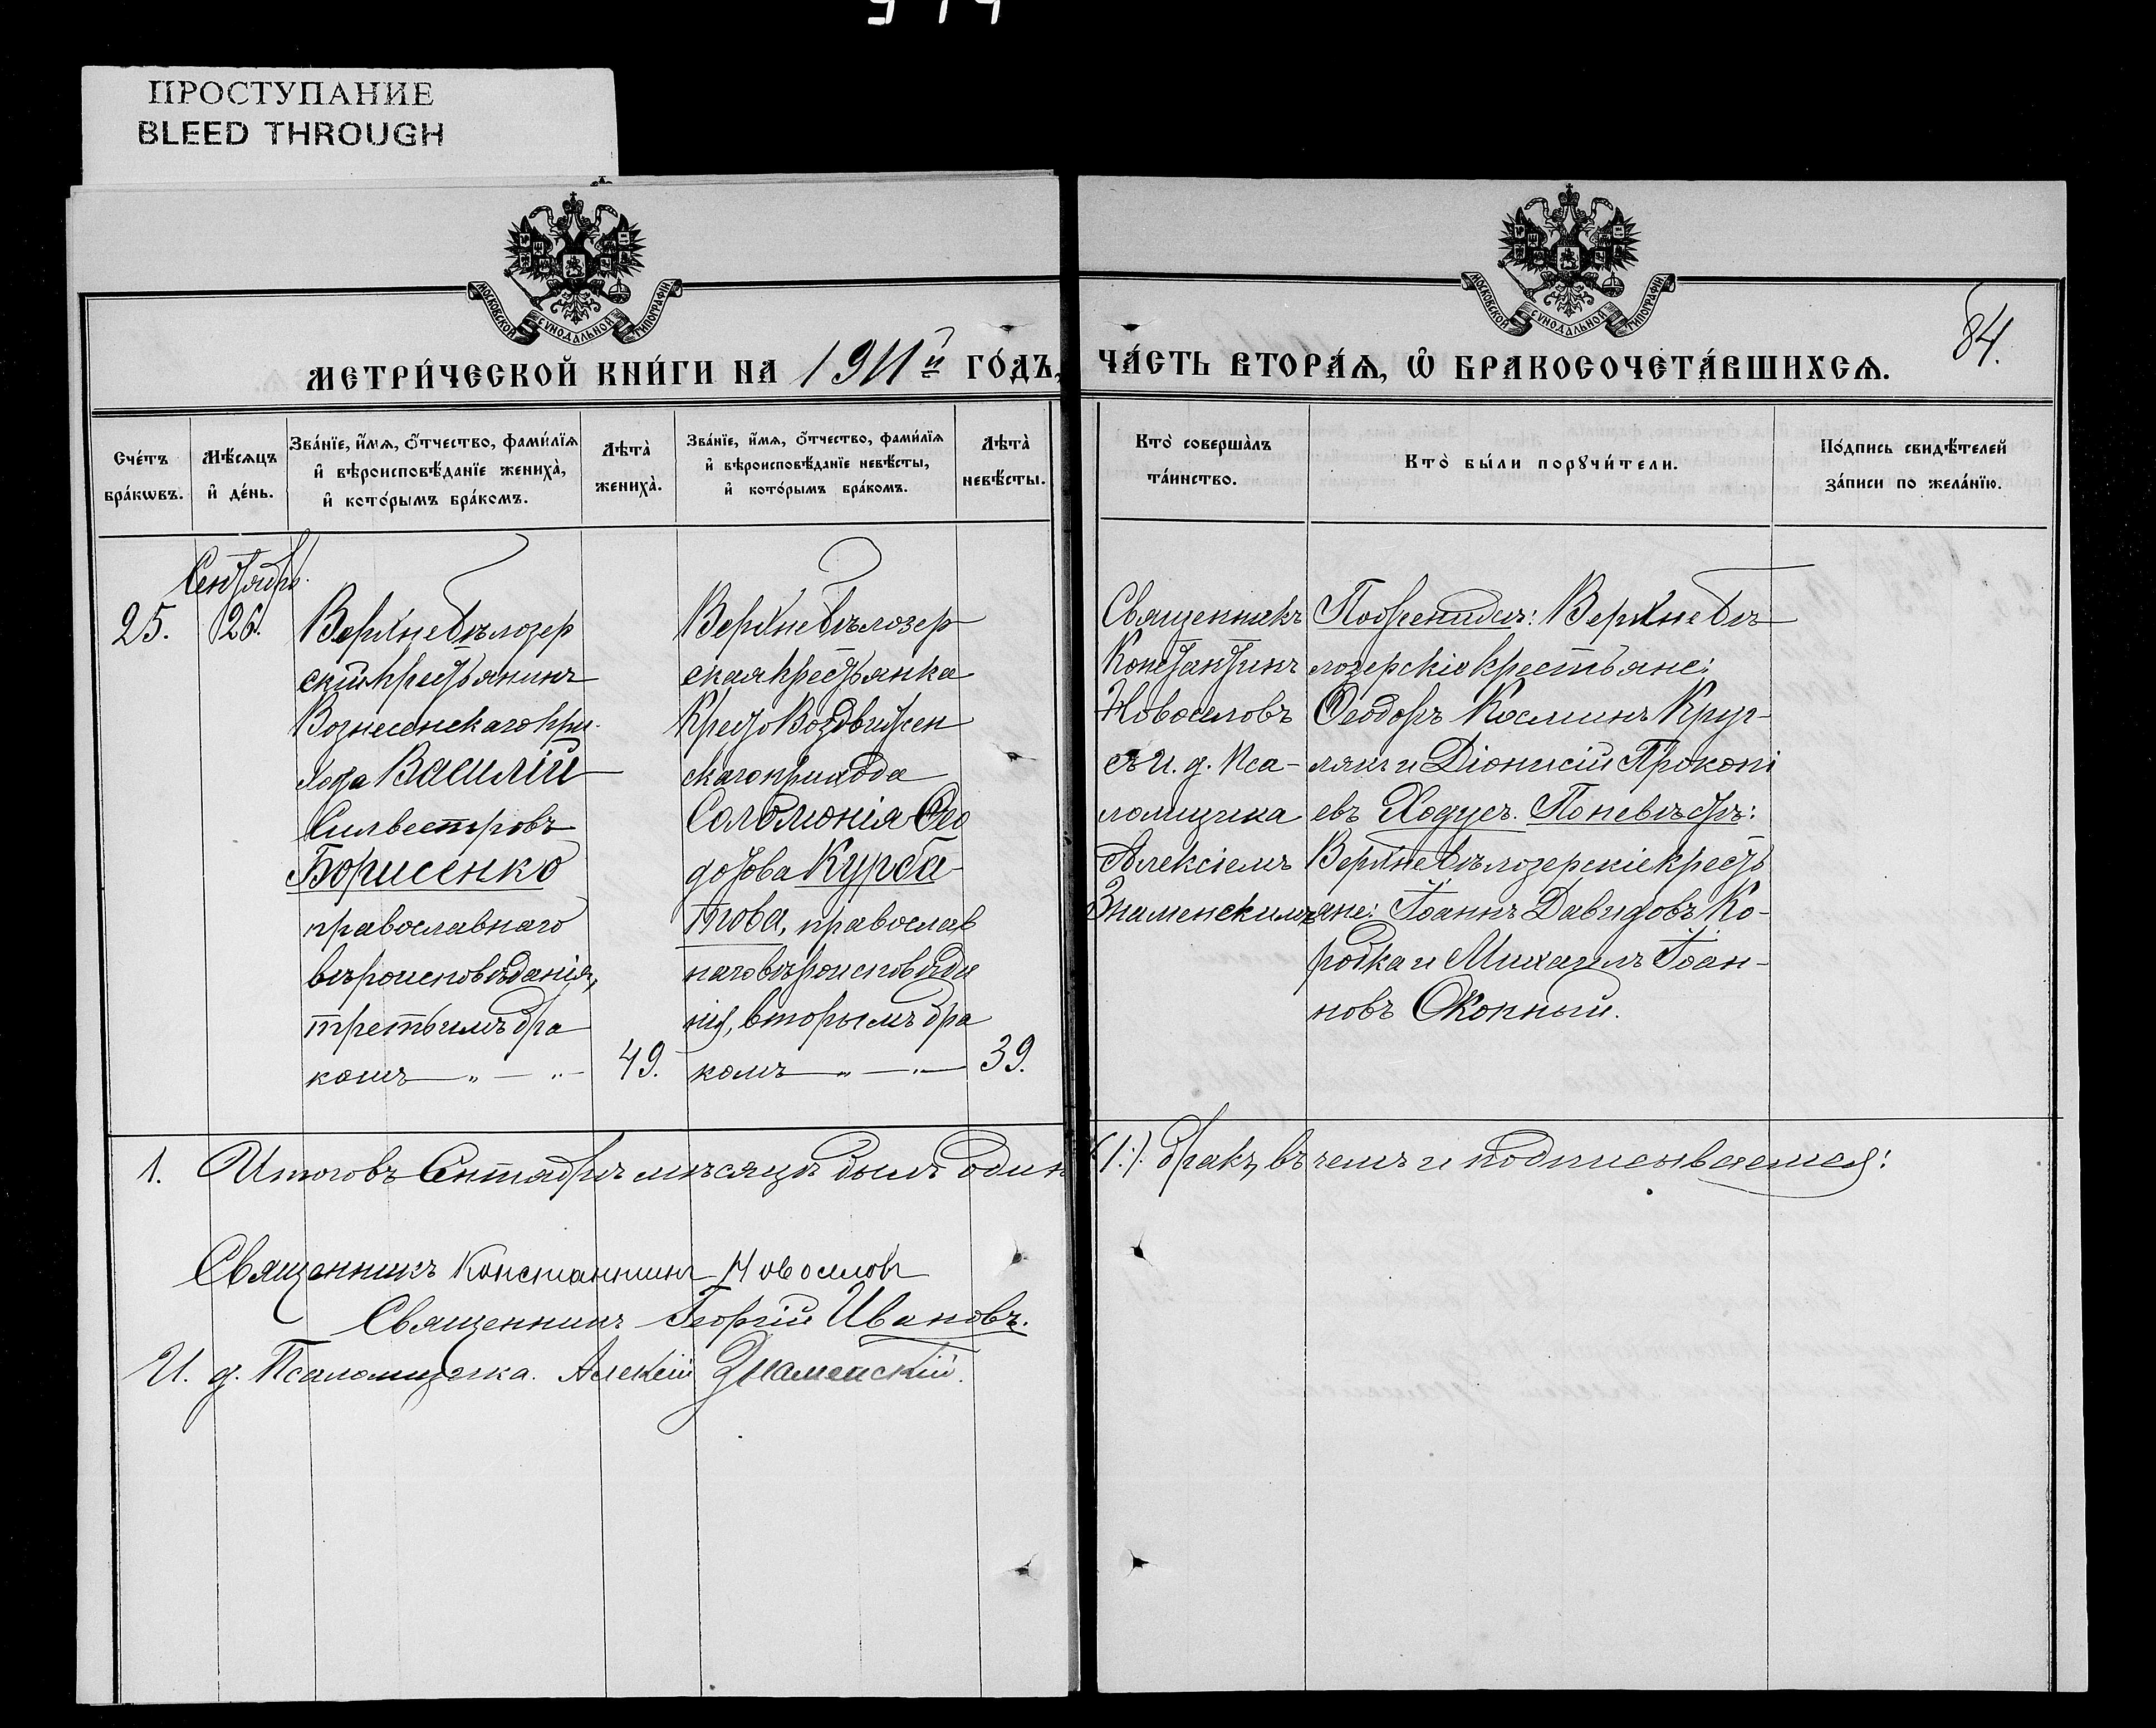 ПРОСТУПАНИЕ
BLEED THROUGH
МОСКОВСКОЙ СУНОДАЛЬНОЙ ТИПОГРАФІИ
МОСКОВСКОЙ СУНОДАЛЬНОЙ ТИПОГРАФІИ
84.
МЕТРИ́ЧЕСКОЙ КНИ́ГИ НА 1911й ГО́ДЪ, ЧА́СТЬ ВТОРА́Ѧ, Ѽ БРАКОСОЧЕТА́ВШИХСѦ.
Сче́тъ
бра́кѡвъ.
Мѣ́сѧцъ
и҆ де́нь.
Зва́нїе, и҆́мѧ, ѻ҆́тчество, фами́лїѧ
и҆ вѣроисповѣ́данїе жениха̀,
и҆ кото́рымъ бра́комъ.
Лѣта̀
жениха̀.
Зва́нїе, и҆́мѧ, ѻ҆́тчество, фами́лїѧ
и҆ вѣроисповѣ́данїе невѣ́сты,
и҆ кото́рымъ бра́комъ.
Лѣта̀
невѣ́сты.
Кто̀ соверша́лъ
та́инство.
Кто̀ бы́ли порꙋчи́тели.
По́дпись свидѣ́телей
за́писи по жела́нїю.
Сентябрь.
25.
26.
Верхнебѣлозер
скій крестьянинъ
Вознесенскаго при-
хода Василій
Силвестровъ
Борисенко
православнаго
вѣроисповѣданія,
третьимъ бра
комъ — „ — „ —
49.
Верхнебѣлозер
ская крестьянка
КрестоВоздвижен
скаго прихода
Саломонія Ѳео
дотова Курба-
това, православ
наго вѣроисповѣда
нія, вторымъ бра
комъ — „ — „ —
39.
Священникъ
Константинъ
Новоселовъ
съ И. д. Пса-
ломщика
Алексіемъ
Знаменскимъ
По женихѣ: Верхнебѣ-
лозерскіе крестьяне:
Ѳеодоръ Косминъ Круг-
лякъ и Діонисій Прокопі
евъ Ходусъ. По невѣстѣ:
Верхнебѣлозерскіе кресть
яне: Іоаннъ Давидовъ Ко-
родка и Михаилъ Іоан-
новъ Оконный.
1. Итого въ Сентябрѣ мѣсяцѣ былъ одинъ (1:). бракъ, въ чемъ и подписываемся:
Священникъ Константинъ Новоселовъ
Священникъ Георгій Ивановъ.
И. д. Псаломщика. Алексій Знаменскій.